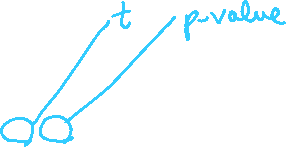 t p-value